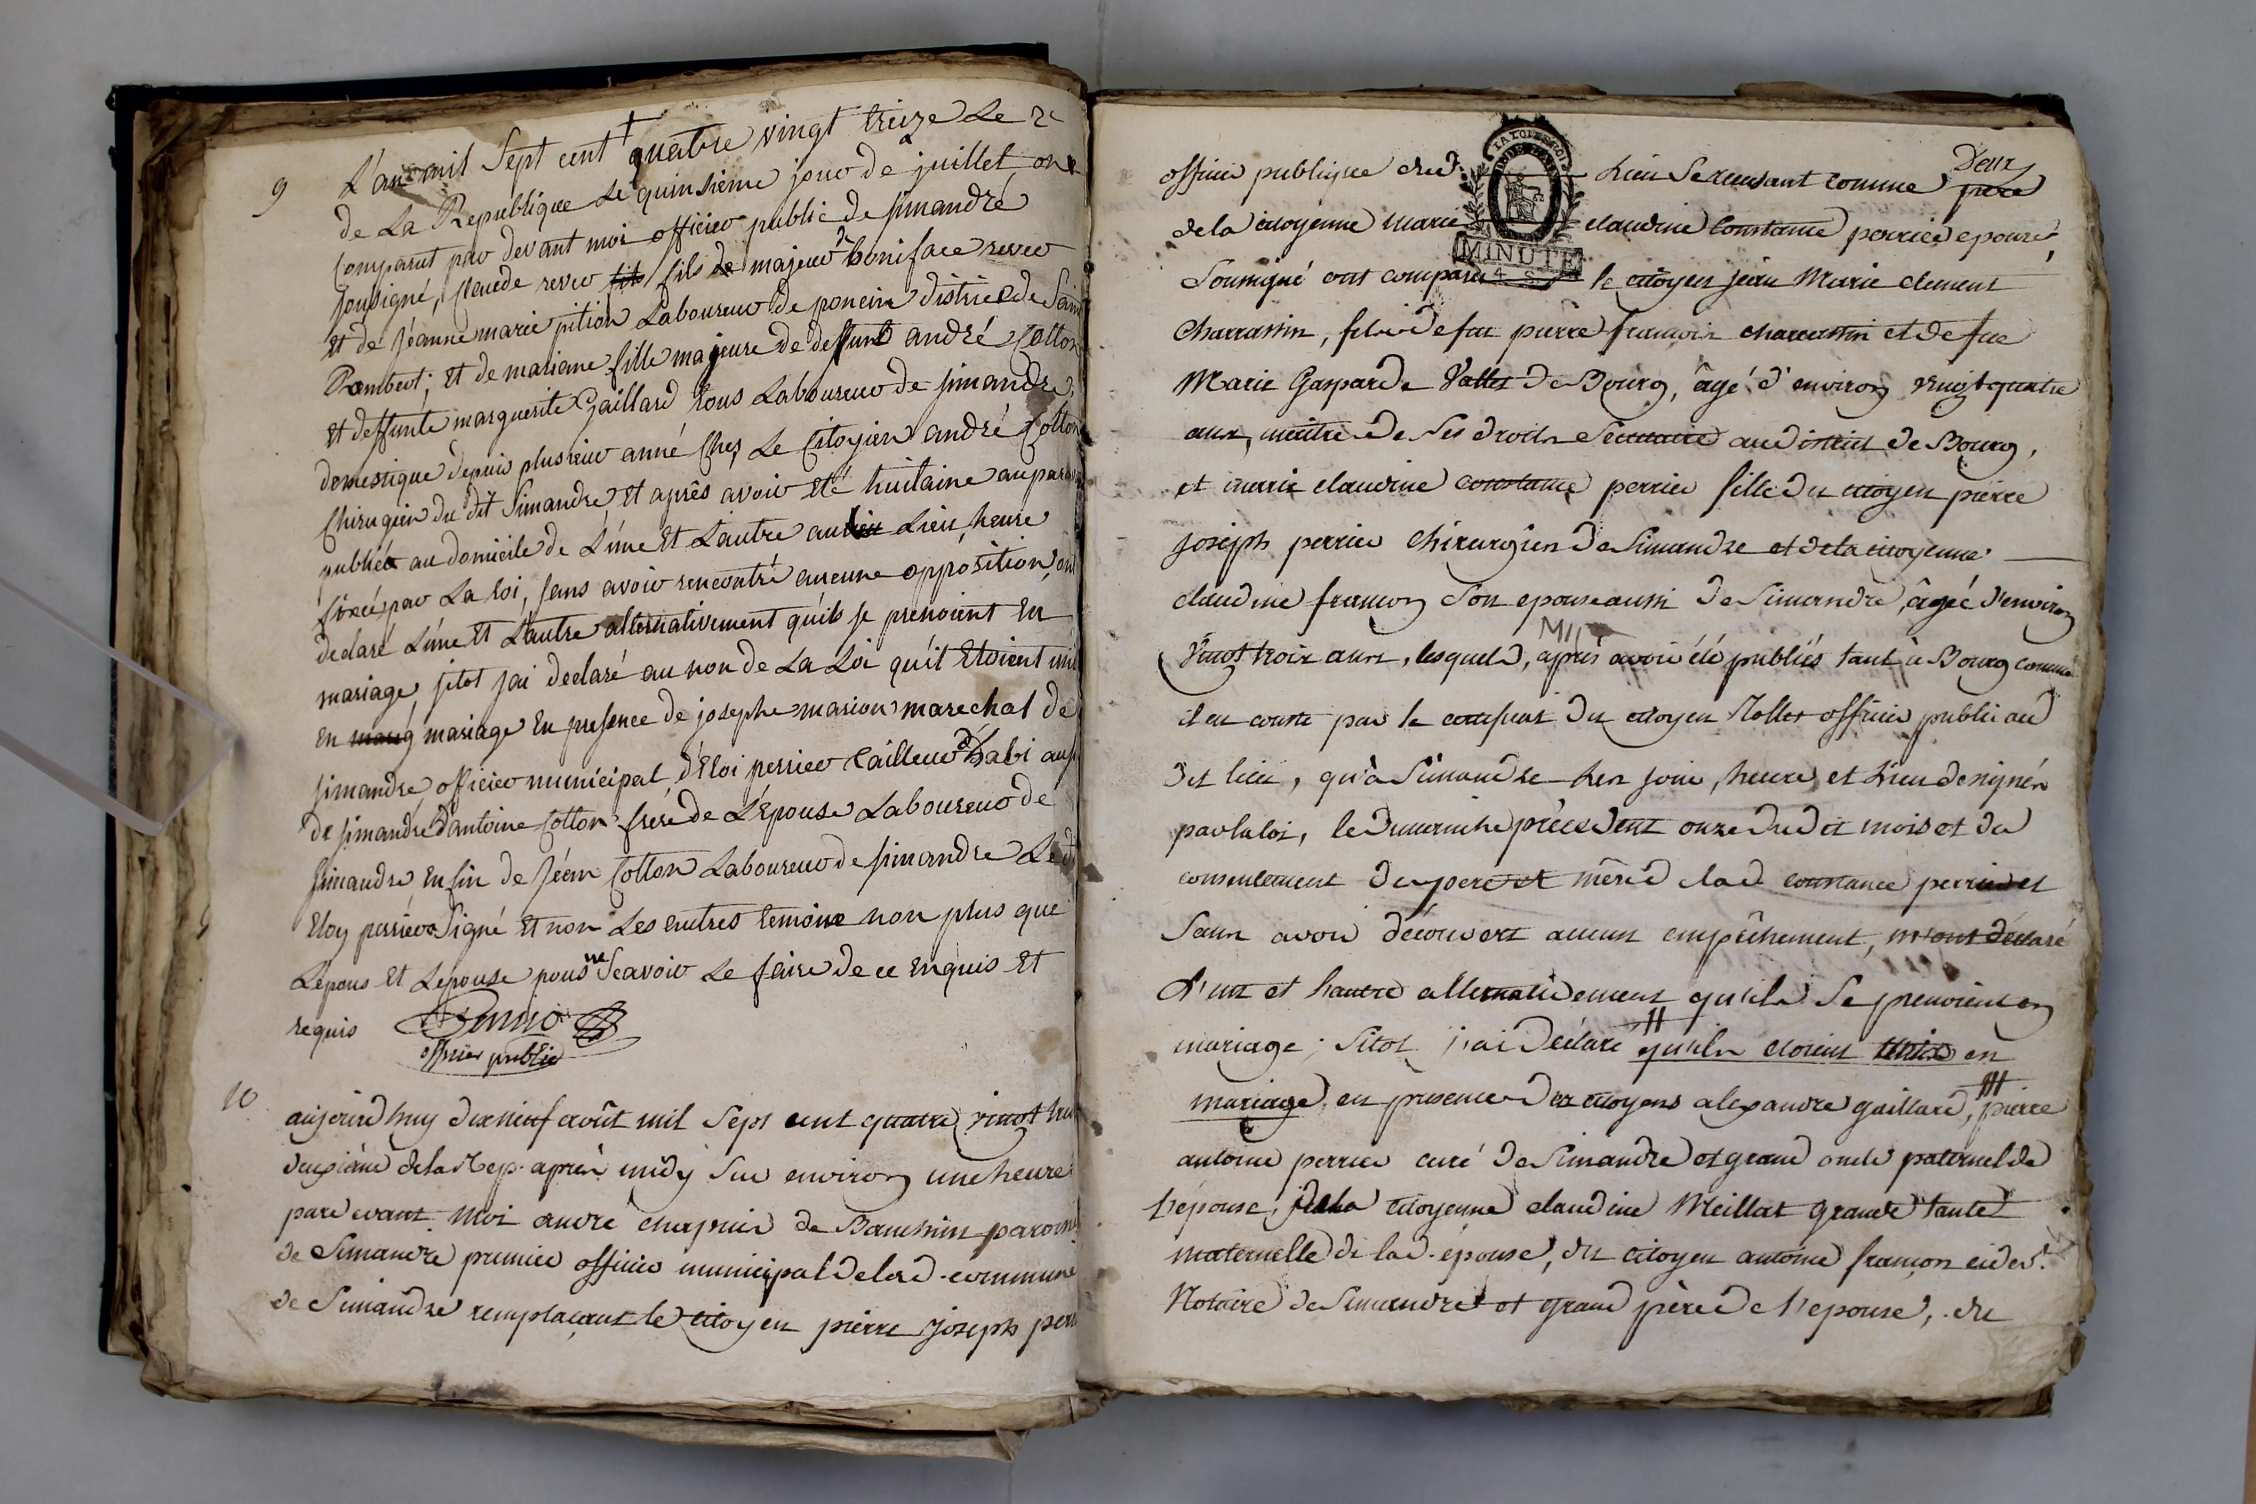 9
L'an mil Sept cent quatre vingt treize Le 2e
de La Republique Le quinsieme jour de juillet ont
Comparut par devant moi officier public de simandré
sousigné, Claude rever fils majeur de boniface rever
et de jéanne marie pition Laboureur de poncin district de Saint
Rambert; et de mariane fille majeure de deffunt andré Cotton
et deffunte marguerite Gaillard tous Laboureur de simandre,
domestique depuis plusieur anné Ches Le Citoyien andré Cotton
Chirugien du dit Simandre, et aprês avoir eté huitaine auparav
publiée au domicile de L'une et L'autre au Lieu, heure
fixcé par La loi, sans avoir rencontré aucune opposition, ont
declaré L'une et L'autre alternativement qu'ils se prenoient en
mariage, sitot jai declaré au non de La Loi qu'il etoient uni
en mariage en presence de josephe marion marechal de
simandre, officier municipal, d'Eloi perrier tailleur d'habi aussi
de simandré d'antoine Cotton freré de L'épouse Laboureur de
simandre en fin de jéan Cotton Laboureur de simandre Le d
Eloy perrier Signé et non Les autres temoins non plus que
L'epous et L'epouse pour ne Scavoir Le faire de ce enquis et
requis
officier public
10
aujourd'huy dixneuf août mil Sept cent quatre vingt treize
deuxième de la Rep. après midy Sur environ une heure
pardevant moi andré chapuis de Banchin paroisse
de Simandre premier officier municipal de la d. commune
de Simandre remplaçant le citoyen pierre Joseph perrier
officier publique dud. Lieu Se recusant comme père D'eux
de la citoyenne Marie claudine Constance perrier epouse,
MINUTE
4 S
Soussigné ont comparu le citoyen jean Marie clement
Charrassin, fils de feu pierre françois charrassin et de feue
Marie Gasparde Vallet de Bourg, âgé d'environ vingt quatre
ans, maitre de Ses droits Secretaire au district de Bourg,
et marie claudine constance perrier fille du citoyen pierre
joseph perrier chirurgien de Simandre et de la citoyenne
claudine françon Son epouse aussi de Simandre, âgée d'environ
vingt trois ans, lesquels, après avoir été publiés tant à Bourg comme
il en conste par le certificat du citoyen Rollet officier public aud
dit lieu, qu'à Simandre Les jour, heure, et Lieu designés
par la loi, le dimanche précédent onze dudit mois et du
consentement des pere et mère de la d constance perrier et
Sans avoir découvert aucun empêchement, m'ont déclaré
L'un et Lautre alternativement qu'ils Se prenoient en
mariage; Sitot j'ai Déclaré qu'ils etoient unis en
mariage en presence des citoyens alexandre gaillard, pierre
antoine perrier curé de Simandre et grand oncle paternel de
l'épouse, de la citoyenne claudine Meillat grande tante
maternelle de la d. épouse, du citoyen antoine françon cidev.
Notaire de Simandre et grand père de l'epouse, du